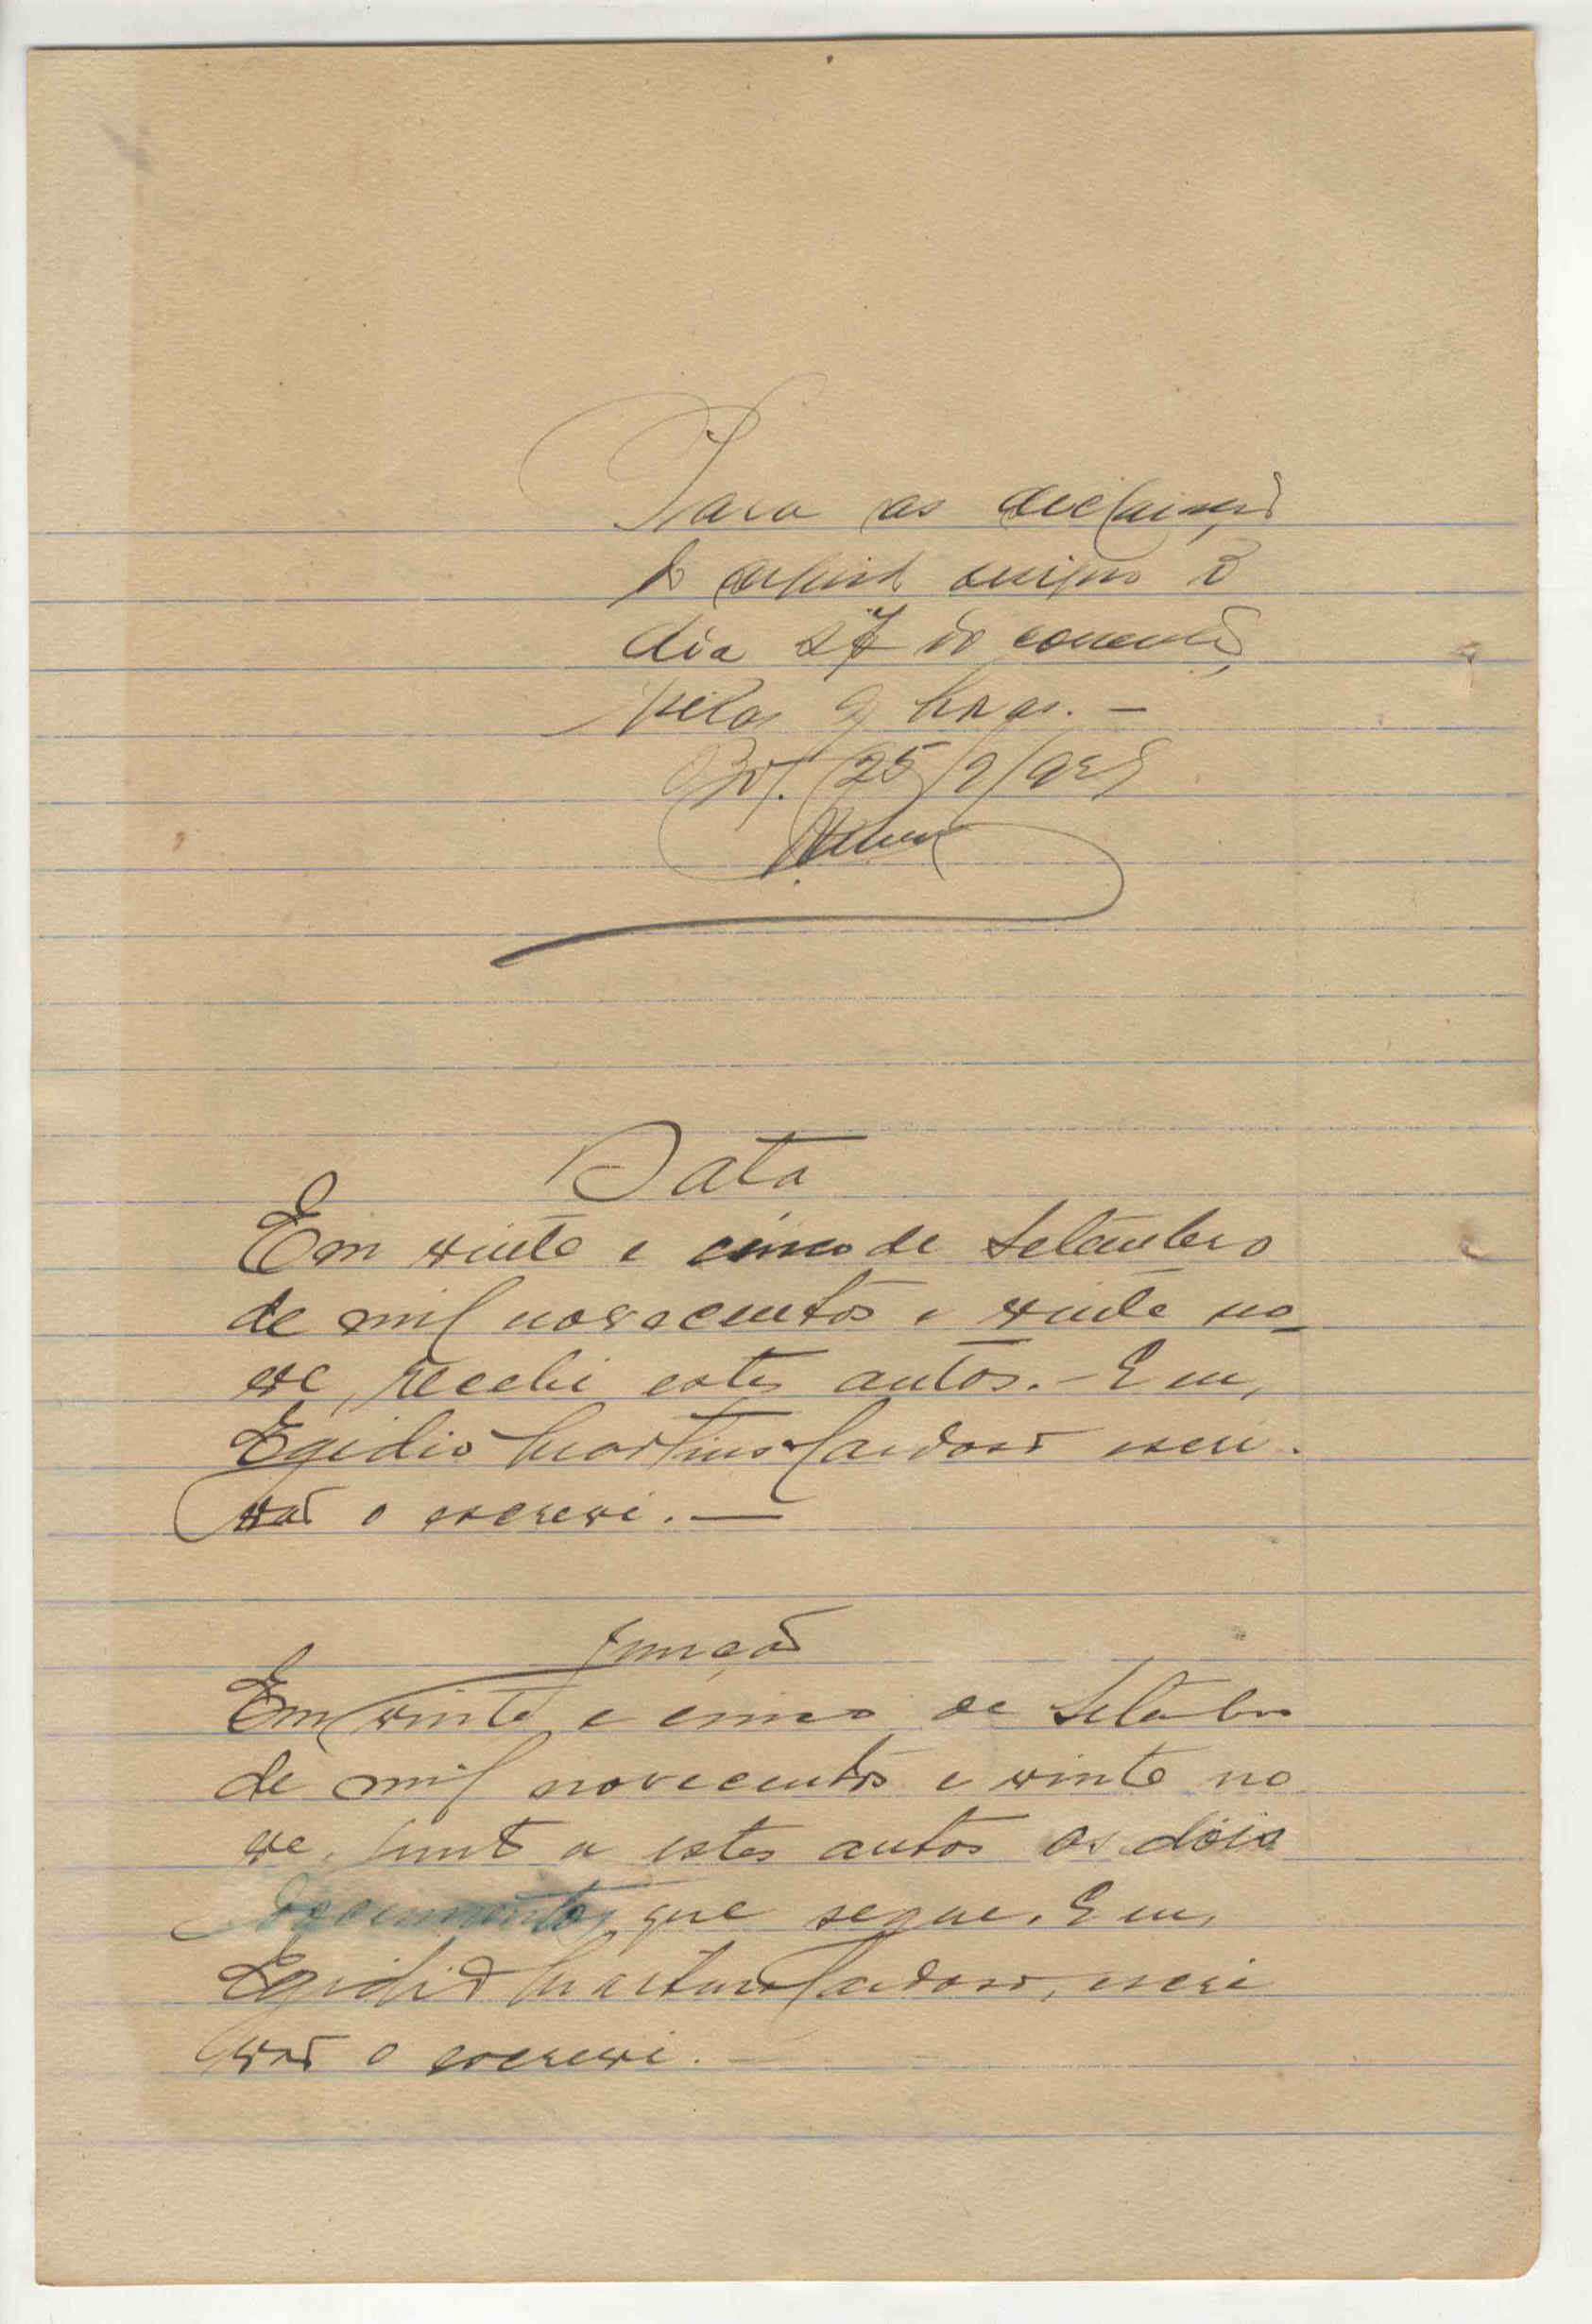 Para as declarações
do
dia 27 do corrente,
pelas 9 horas. —
Bot. 25/9/929
Data
Em vinte e cinco de Setembro
de mil novecentos e vinte no-
ve, recebi estes autos. - Eu,
Egidio Martins Cardoso escri-
vão o escrevi. —
Junção
Em vinte e cinco de Setembro
de mil novecentos e vinte no
ve, junto a estes autos os dois
documentos que segue. Eu,
Egidio Martins Cardoso, escri
vão o escrevi. —